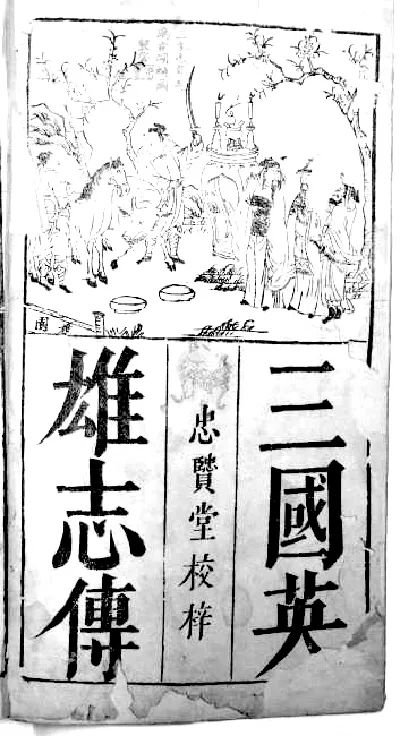 三國英
忠賢堂校梓
雄志傳